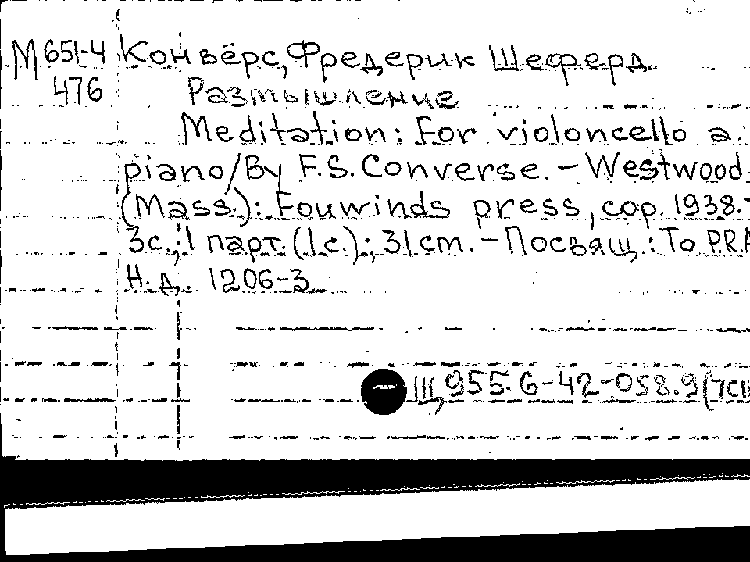 М 651-4 Конвёрс, Фредерик Шеферд
476 Размышление
Meditation: For violoncello a.
piano/By F.S. Converse. - Westwood
(Mass.): Fouwinds press, cop. 1938. -
3с., 1 парт. (1 с.); 31 cm. - Посвящ.: To P.R.A
Н.д. 1206-3
Щ955.6-42-058.9(7СШ